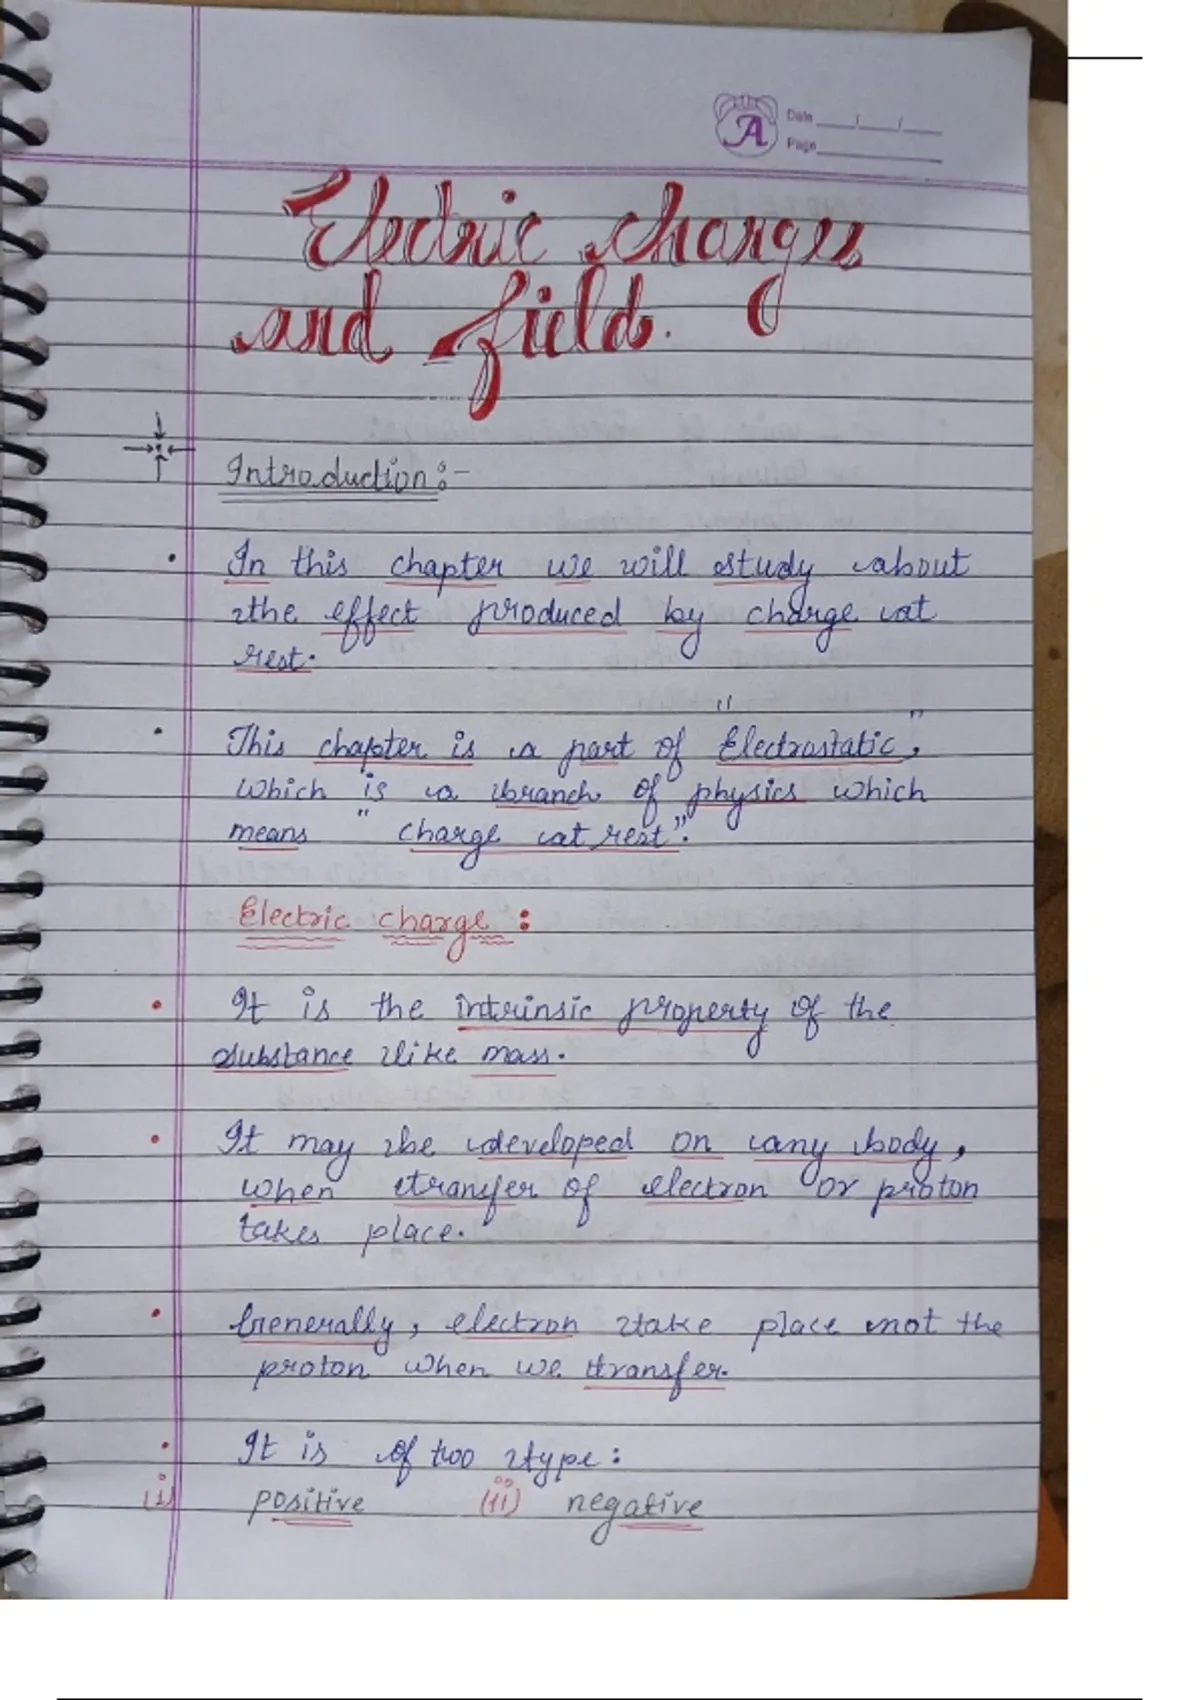 A
Date ___/___/___
Page
Electric charges
and field.
Introduction :-
In this chapter we will study about
the effect produced by charge at
rest.
This chapter is a part of "Electrostatic",
which is a branch of physics which
means "charge at rest".
Electric charge :
It is the intrinsic property of the
substance like mass.
It may be developed on any body,
when transfer of electron or proton
takes place.
Generally, electron take place not the
proton when we transfer.
It is of two type :
(i) positive (ii) negative